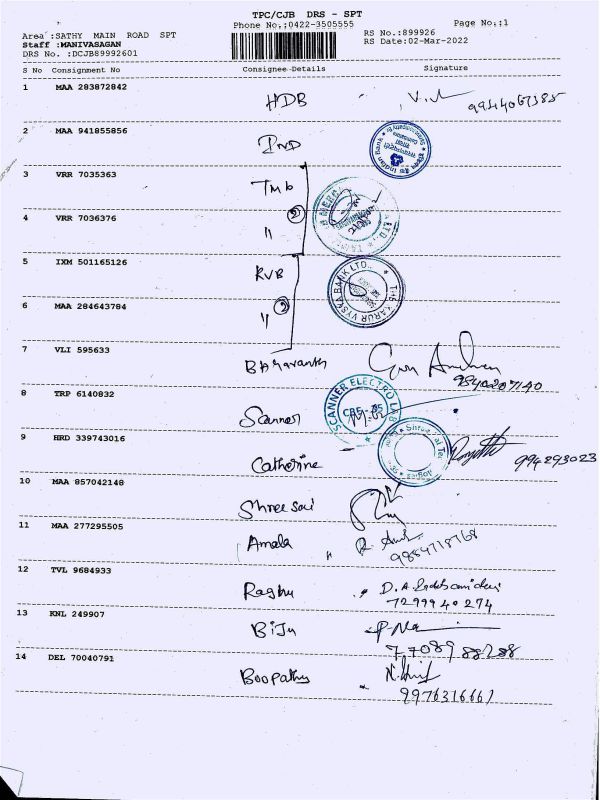 TPC/CJB DRS - SPT
Phone No.:0422-3505555
Page No.:1
Area :SATHY MAIN ROAD SPT
RS No.:899926
Staff :MANIVASAGAN
RS Date:02-Mar-2022
DRS No. :DCJB89992601
S No Consignment No Consignee Details Signature
1 MAA 283872842 HDB
2 MAA 941855856 IND
Indian Bank
3 VRR 7035363 Tmb
4 VRR 7036376 "
2
5 IXM 501165126 KVB
KARUR VYSYA BANK LTD.
6 MAA 284643784 "
2
7 VLI 595633
9840207140
8 TRP 6140832 Scanner
SCANNER ELECTRO LAB
9 HRD 339743016 Catherine
994293023
10 MAA 857042148 Shree Sai
11 MAA 277295505 Amala
12 TVL 9684933 Raghu
7299940274
13 KNL 249907 Biju
7708988288
14 DEL 70040791 Boopathy
9976316661